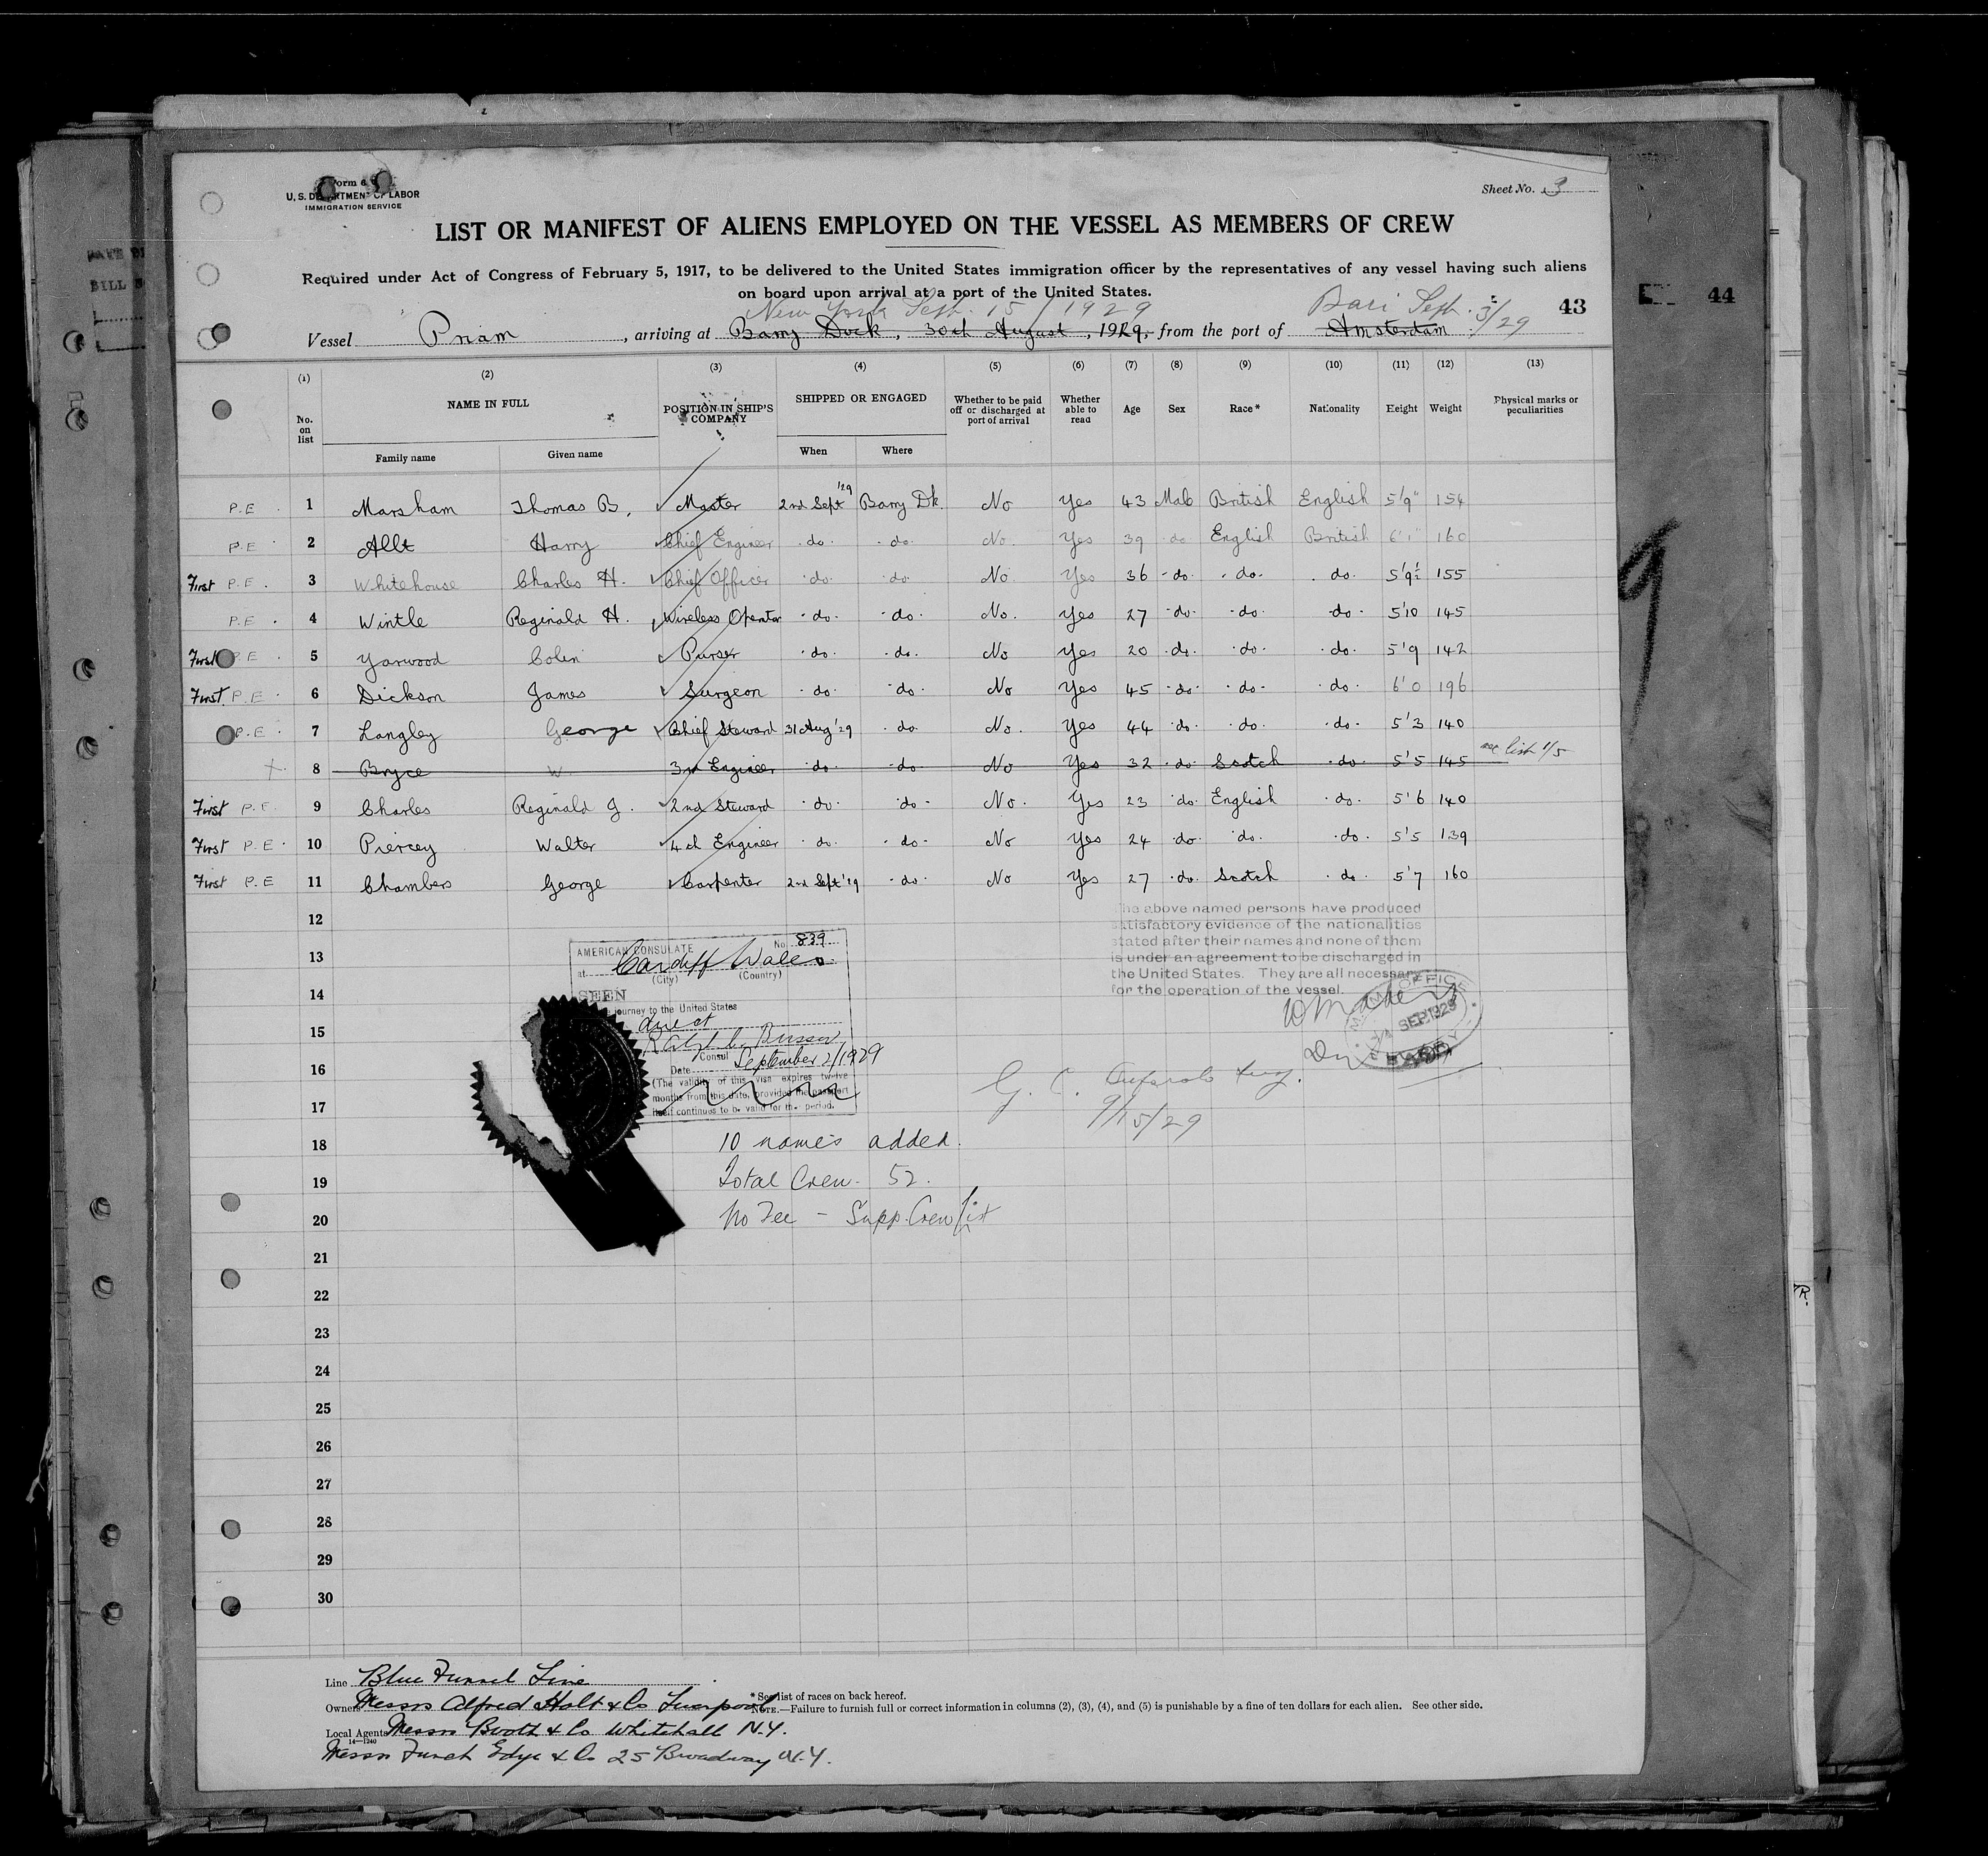 Sheet No. 3
Form 6
U. S. DEPARTMENT OF LABOR
IMMIGRATION SERVICE
LIST OR MANIFEST OF ALIENS EMPLOYED ON THE VESSEL AS MEMBERS OF CREW
Required under Act of Congress of February 5, 1917, to be delivered to the United States immigration officer by the representatives of any vessel having such aliens
on board upon arrival at a port of the United States.
New York Sept. 15/1929 Bari Sept. 3/29
43
44
Vessel Priam, arriving at Barry Dock, 30th August, 1929, from the port of Amsterdam
(1) (2) (3) (4) (5) (6) (7) (8) (9) (10) (11) (12) (13)
No. on list NAME IN FULL POSITION IN SHIP'S COMPANY SHIPPED OR ENGAGED Whether to be paid off or discharged at port of arrival Whether able to read Age Sex Race* Nationality Height Weight Physical marks or peculiarities
Family name Given name When Where
P.E. 1 Marsham Thomas B. Master 2nd Sept '29 Barry Dk. No Yes 43 Male British English 5'9" 154
P.E. 2 Allt Harry Chief Engineer do. do. No. Yes 39 do English British 6'1" 160
First P.E. 3 Whitehouse Charles H. Chief Officer do. do No Yes 36 do. do. do. 5'9½ 155
P.E. 4 Wintle Reginald H. Wireless Operator do. do. No. Yes 27 do. do. do. 5'10 145
First P.E. 5 Yarwood Colin Purser do. do. No Yes 20 do. do. do. 5'9 142
First P.E. 6 Dickson James Surgeon do. do. No Yes 45 do. do. do. 6'0 196
P.E. 7 Langley George Chief Steward 31 Aug '29 do. No. Yes 44 do. do. do. 5'3 140
X 8 Bryce W 3rd Engineer do. do No Yes 32 do Scotch do. 5'5 145 see list 1/5
First P.E. 9 Charles Reginald J. 2nd Steward do. do. No. Yes 23 do. English do. 5'6 140
First P.E. 10 Piercey Walter 4th Engineer do. do. No Yes 24 do. do. do. 5'5 139
First P.E 11 Chambers George Carpenter 2nd Sept '29 do. No Yes 27 do. Scotch do. 5'7 160
12
The above named persons have produced
satisfactory evidence of the nationalities
stated after their names and none of them
is under an agreement to be discharged in
the United States. They are all necessary
for the operation of the vessel.
SEP 1929
13
AMERICAN CONSULATE No. 839
at Cardiff Wales
(City) (Country)
14
SEEN
journey to the United States
15
direct
Consul
September 2/1929
16
Date
(The validity of this visa expires twelve
months from this date, provided the passport
itself continues to be valid for the period.
17
G. C.
9/15/29
18
10 names added.
19
Total Crew. 52.
20
No Fee - Supp. Crew list
21
22
23
24
25
26
27
28
29
30
Line Blue Funnel Line
* See list of races on back hereof.
Owners Messrs Alfred Holt & Co Liverpool
NOTE.—Failure to furnish full or correct information in columns (2), (3), (4), and (5) is punishable by a fine of ten dollars for each alien. See other side.
Local Agents Messrs Booth & Co Whitehall N.Y.
14—1240
Messrs Funch Edye & Co 25 Broadway N.Y.